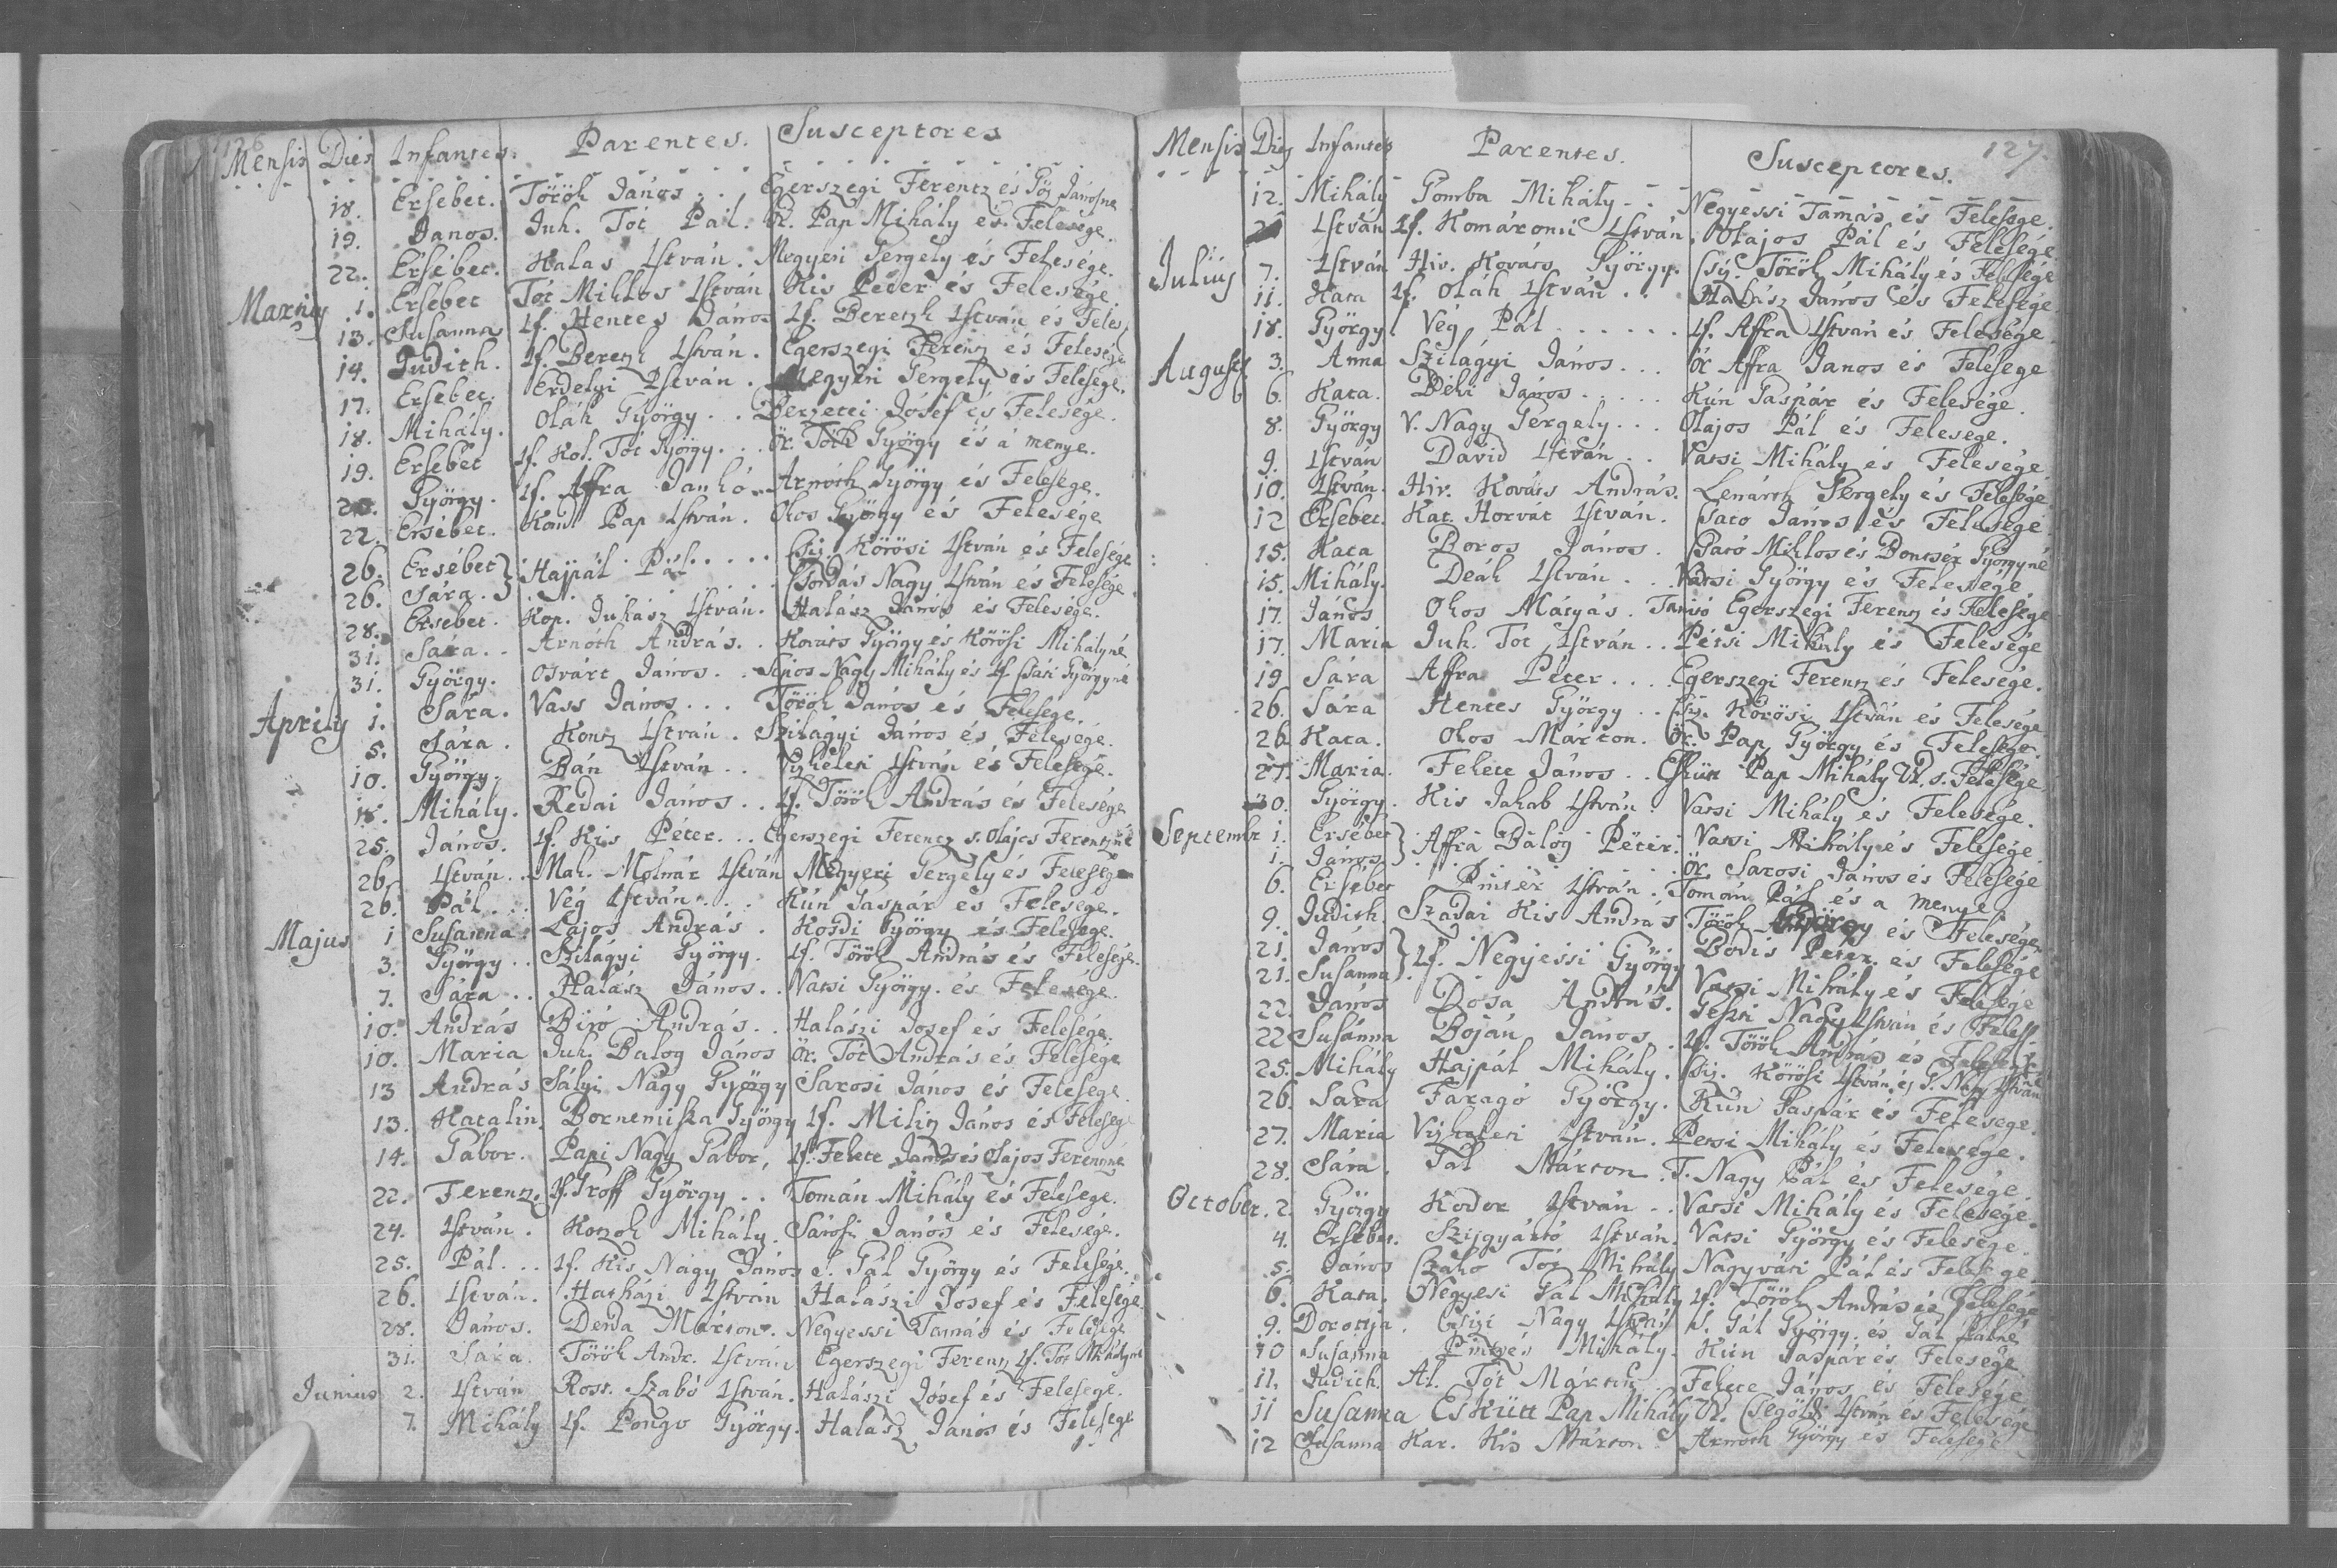 126
Mensis Dies Infantes. Parentes. Susceptores
18. Ersebet. Török János . . . Egerszegi Ferentz és Jánosne
19. Janos. Juh. Tót Pál. Ör. Pap Mihály és Felesége.
22. Ersébet. Halas István. Megyeri Gergely és Felesége.
Martiy 1. Ersébet Tót Miklos István Kis Péter és Felesége.
13. Susanna If. Hentes János If. Beretzk István és Feles
14. Judith. If. Beretzk István. Egerszegi Ferentz és Felesége
17. Ersebet. Erdelyi István. Megyeri Gergely és Felesége.
18. Mihály. Oláh György . . Berzetei Jósef és Felesége.
19. Ersébet If. Kol. Tót György. . . Ör. Tóth György és á menye.
20. György. If. Affra Jankó. Arnóth György és Felesége.
22. Ersébet. Kond Pap István. Okos György és Felesége
26. Ersébet } Hajpál Pál . . . . . Szíj. Körösi István és Felesége
26. Sára. } . . . Csordás Nagy István és Felesége
28. Ersebet. Kop. Juhász István. Halász János és Felesége.
31. Sára. . Arnóth András. . Kováts György és Körösi Mihályné
31. György. Osvárt János. . Sipos Nagy Mihály és If Györgyné
Aprily 1. Sára. Vass János. . . Török János és Felesége.
5. Sára. Kontz István. Szilágyi János és Felesége.
10. György. Bán István . . Vizkeleti István és Felesége.
18. Mihály. Rédai János. . If. Török András és Felesége
25. János. If. Kis Péter. . . Egerszegi Ferentz s. Olajos Ferentzné
26. István. . Mak. Molnár István Megyeri Gergely és Felesége
26. Pál. . . Vég István. . . Kún Gáspár és Felesége.
Majus 1 Susanna. Lajos András. Kosdi György és Felesége.
3. György. . Szilágyi György. If. Török András és Felesége.
7. Sára. . Halász János. . Vatsi György és Felesége.
10. András Biró András. . Halászi Josef és Felesége.
10. Maria Juh. Balog János Ör. Tót András és Felesége
13 András Sályi Nagy György Sarosi János és Felesége.
13. Katalin Bornemiska György If. Milis János és Felesége
14. Gábor. Papi Nagy Gábor, If. Fekete János és Olajos Ferentzné
22. Ferentz. If. Groff György . . Tomán Mihály és Felesége.
24. István. Kotzok Mihály. Sárosi János és Felesége.
25. Pál. . . If. Kis Nagy János S. Gál György és Felesége.
26. István. Harházi István Halászi Josef és Felesége
28. János. Derda Márton. Negyessi Tamás és Felesége
31. Sára. Török Andr. István Egerszegi Ferentz If. Tót Mihályné
Junius 2. István Ross. Szabó István. Halászi Jósef és Felesége.
7. Mihály If. Pongo György. Halász János és Felesége
127.
Mensis Dies Infantes Parentes. Susceptores.
12. Mihály Gomba Mihály . . Negyessi Tamás és Felesége.
István If. Komáromi István. Olajos Pál és Felesége
Julius 7. István Hiv. Kováts György. Szíj. Török Mihály és Felesége
11. Kata If. Oláh István . . Halász János és Felesége
18. György Vég Pál . . . . . . If. Affra István és Felesége
August 3. Anna Szilágyi János . . . Ör Affra Janos és Felesége
6. Kata. Béki János . . . . . Kún Gáspár és Felesége.
8. György V. Nagy Gergely . . . Olajos Pál és Felesege.
9. István David István . . Vatsi Mihály és Felesége
10. István. Hiv. Kováts András. Lenárth Gergely és Felesége
12 Ersebet. Kat. Horvát István. Sato János és Felesége
15. Kata Boros János. Gató Miklos és Bontsér Györgyné
15. Mihály. Deák István . . Vatsi György és Felesége
17. János Okos Mátyás. Tanító Egerszegi Ferentz és Felesége
17. Maria Juh. Tót István . . Pétsi Mihály és Felesége
19 Sára Affra Péter . . . Egerszegi Ferentz és Felesége.
26. Sára Hentes György . . Szíj. Körösi István és Felesége
26 Kata. Okos Márton. Ör. Pap György és Felesége.
27. Maria. Fekete János . . Esküt Pap Mihály Ur. s. Felesége
30. György. Kis Jakab István. Vatsi Mihály és Felesége.
Septembr 1. Ersébet } Affra Balog Péter. Vatsi Mihály és Felesége.
1. János } . . . Ör. Sarosi János és Felesége
6. Ersébet Pintér István. Tomán Pál és a menye
9. Judith. Szadai Kis András Török György és Felesége
21. János } If. Negyessi György Bodis Péter és Felesége
21. Susanna } Vatsi Mihály és Felesége
22. János Dósa András. Nagy István és Felesé
22 Susánna Boján János. If. Török András és Felesége
25. Mihály Hajpál Mihály. Szíj. Körösi István és T. Nagy Istvánné
26. Sara Faragó György. Kún Gáspár és Felesege.
27. Maria Vizkeleti István. Petsi Mihály és Felesége.
28. Sára. Gál Márton. T. Nagy Pál és Felesége.
October. 2. György Kodor István . . Vatsi Mihály és Felesége.
4. Ersébet. Szijgyártó István. Vatsi György és Felesége.
5. János Szako Tót Mihály Nagyvári Pál és Felesége.
6. Kata. Negyesi Pál Mihály If. Török András és Felesége
9. Dorottja. Csizi Nagy István S. Gál György és Gál Palné
10 Susanna Pintzés Mihály. Kún Gáspár és Felesége
11. Judith. Al. Tót Márton Fekete János és Felesége
11 Susanna Eskütt Pap Mihály Ur. Segöldi István és Felesége
12 Susanna Kar. Kis Márton Arnoth György és Felesége